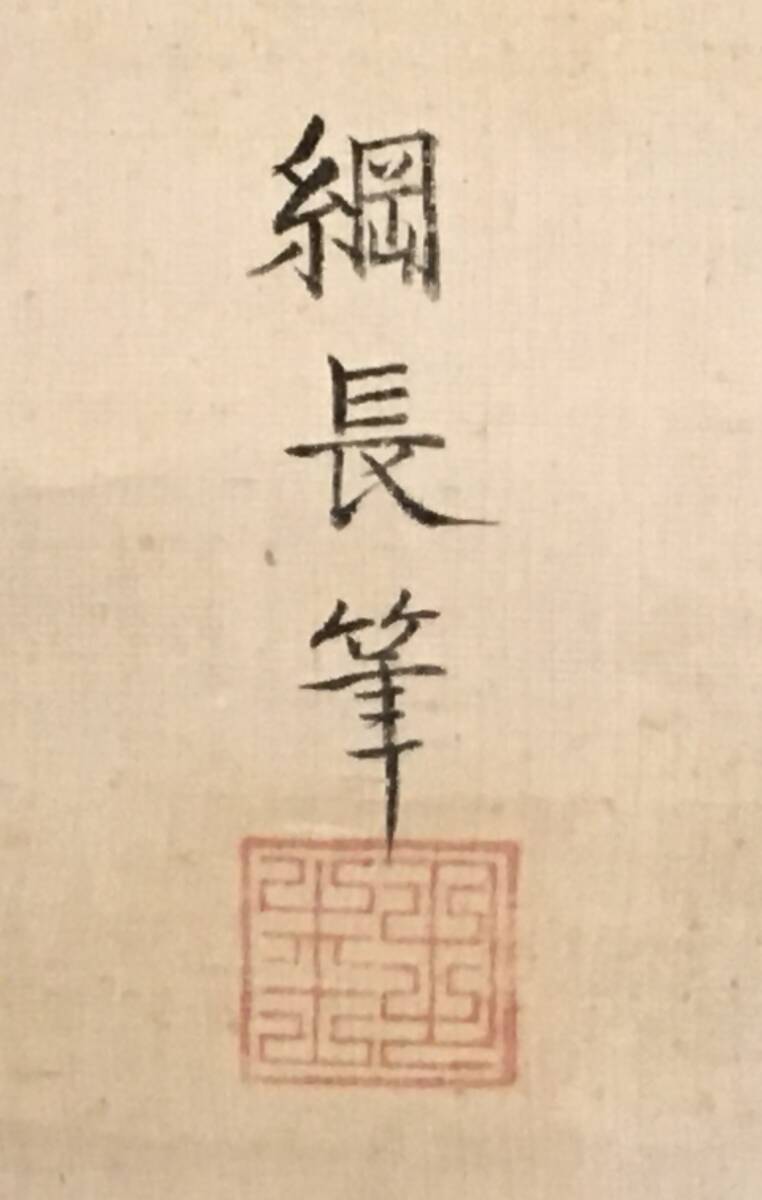 綱長筆